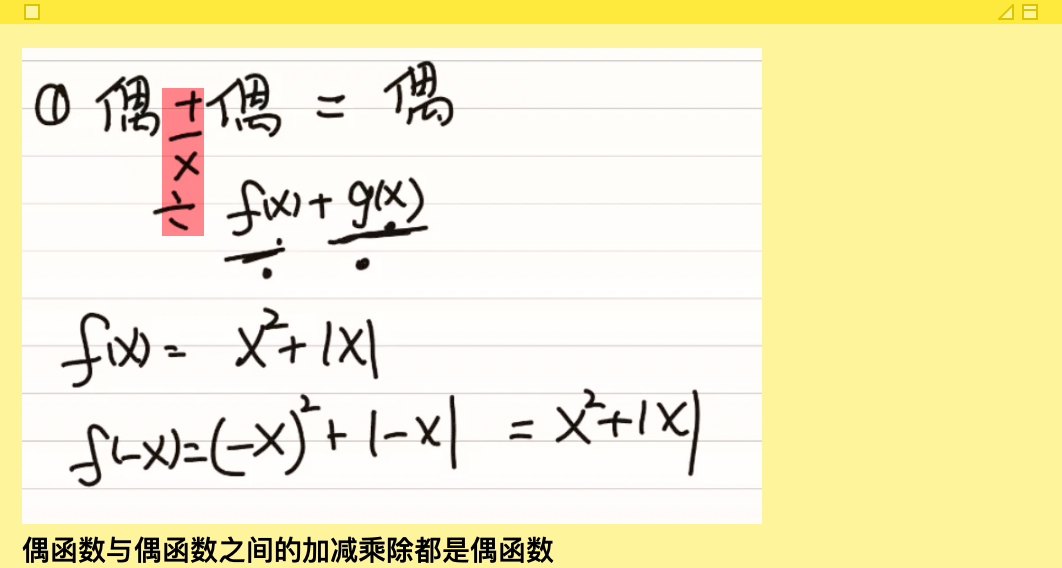 ① 偶+偶 = 偶
−
×
÷
f(x)+g(x)
f(x)= x²+|x|
f(-x)=(-x)²+|-x| = x²+|x|
偶函数与偶函数之间的加减乘除都是偶函数